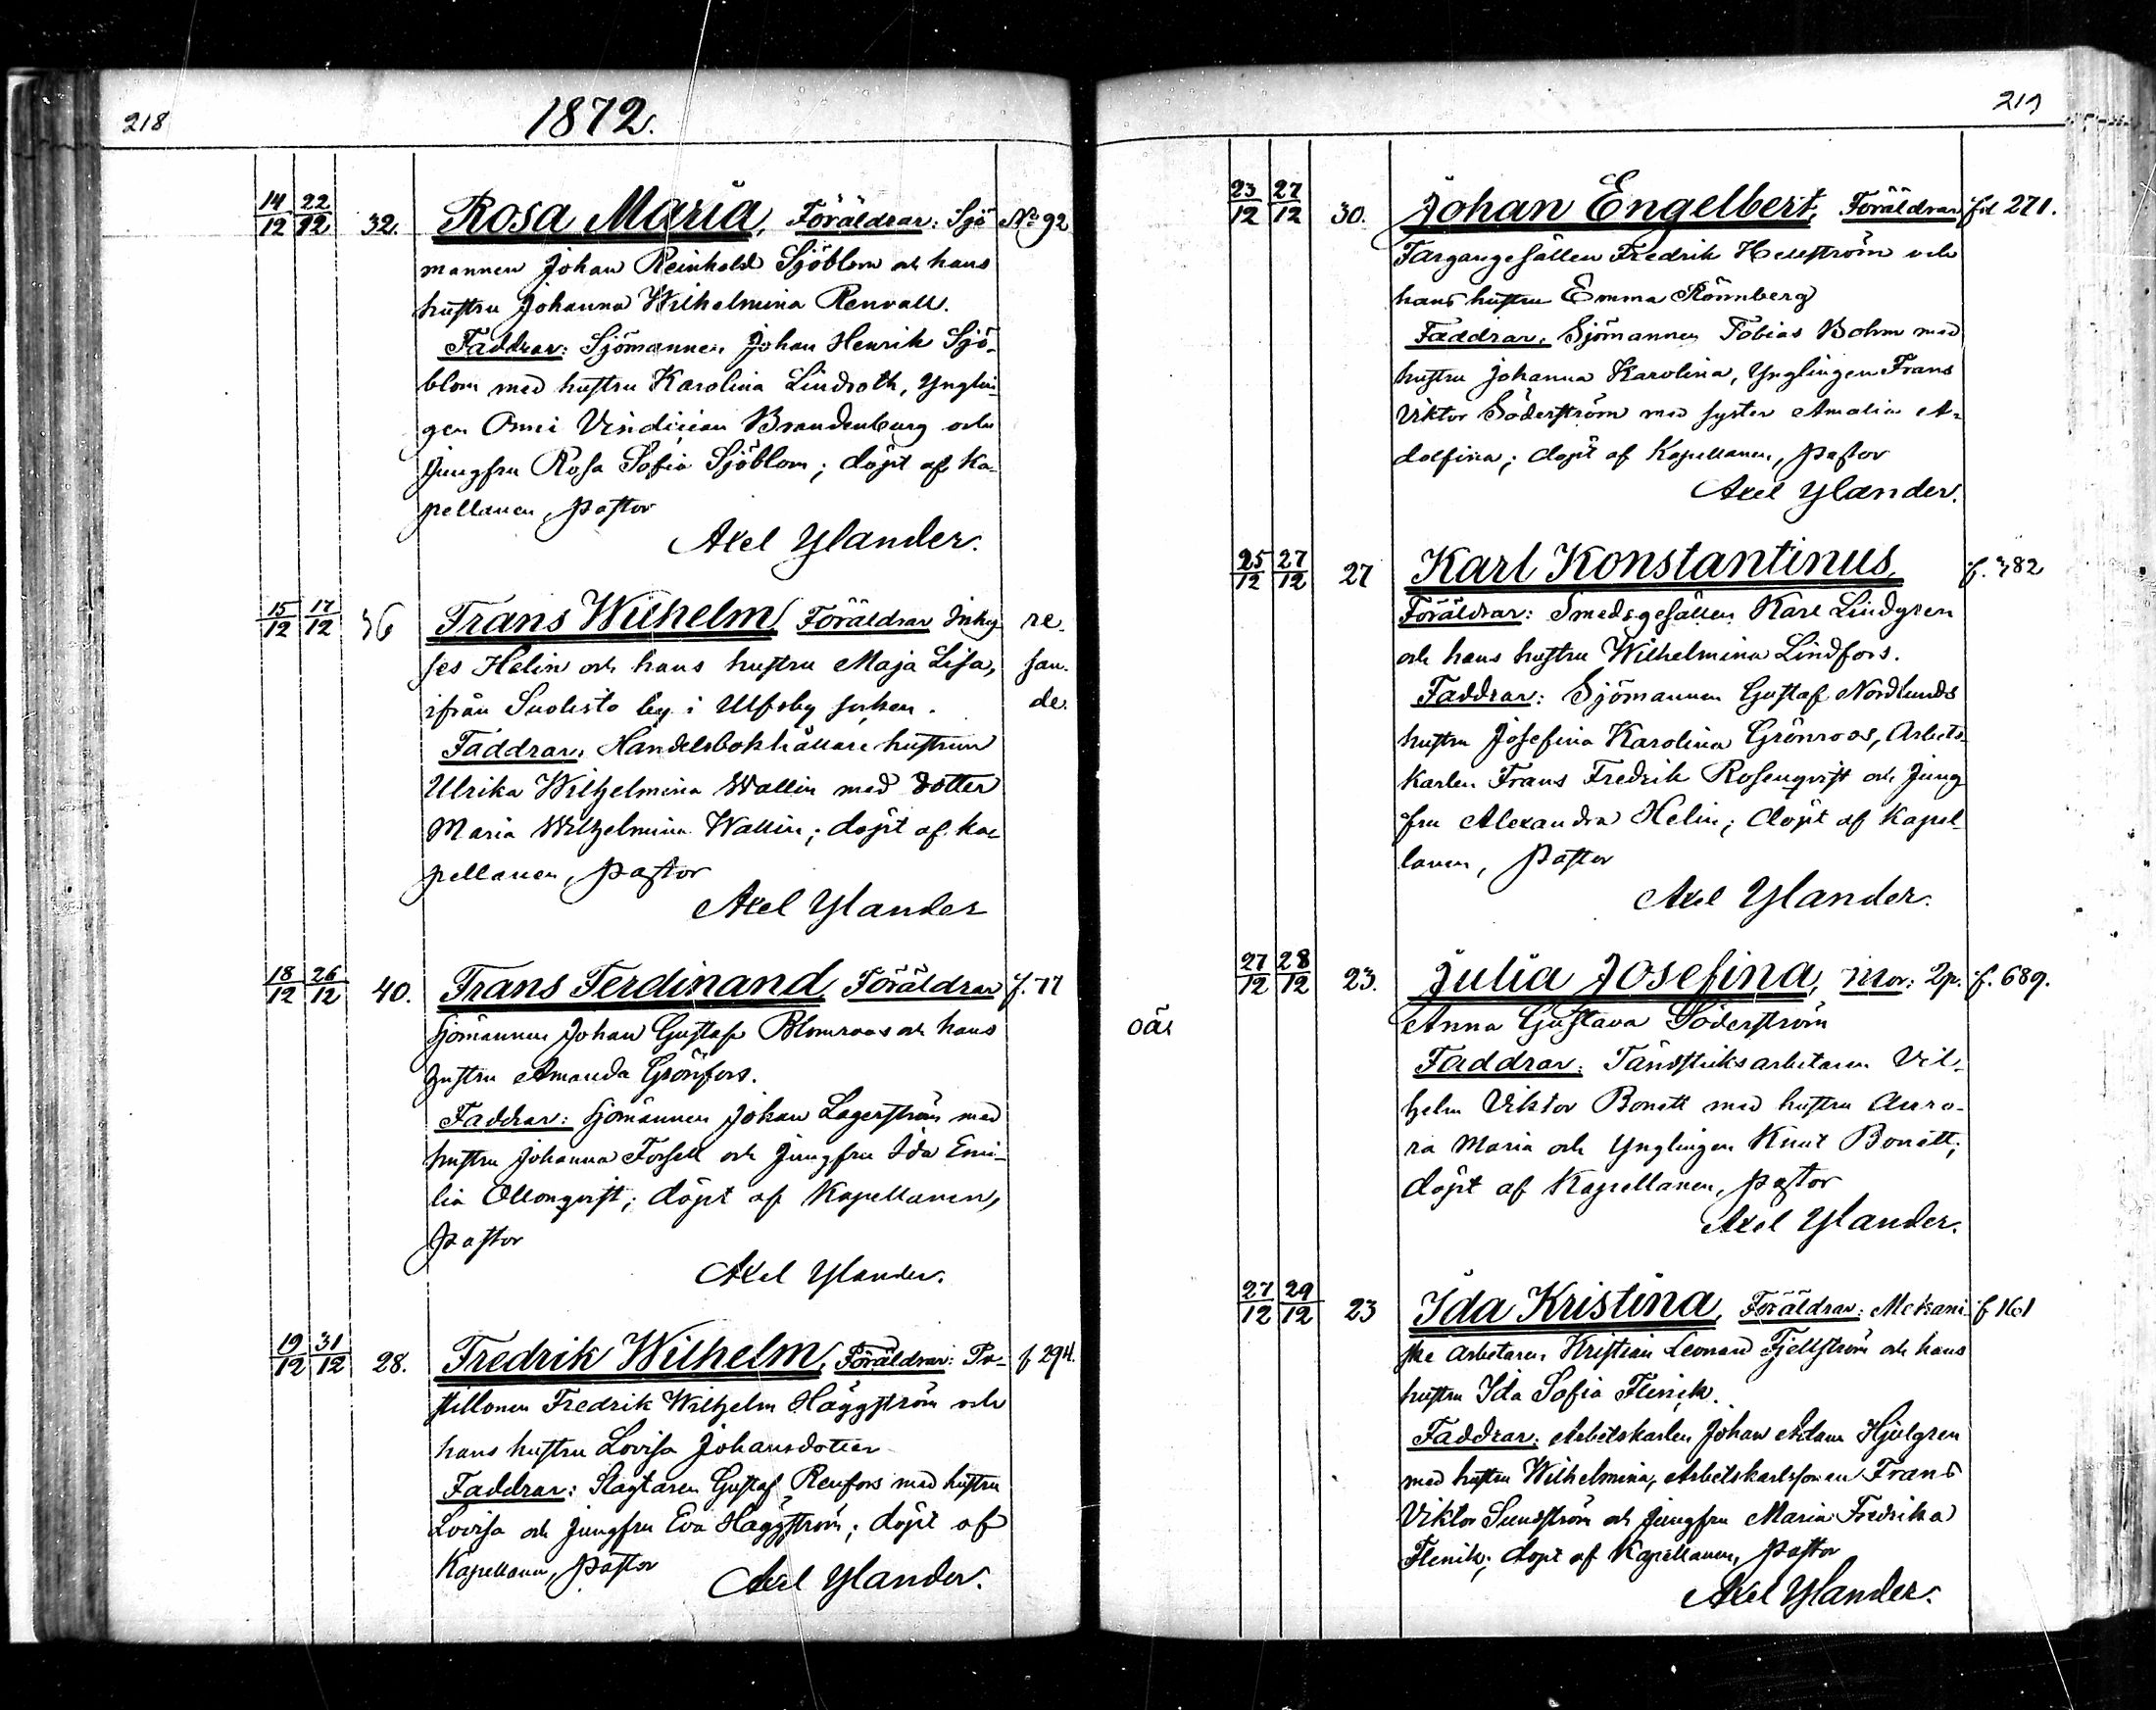 218
1872.
14/12 22/12 32. Rosa Maria, Föräldrar: Sjö- No 92
mannen Johan Reinhold Sjöblom och hans
hustru Johanna Wilhelmina Renvall.
Faddrar: Sjömannen Johan Henrik Sjö-
blom med hustru Karolina Lindroth, Ynglin-
gen Vindician Brandenburg och
Jungfru Rosa Sofia Sjöblom; döpt af Ka-
pellanen, Pastor
Axel Ylander.
15/12 17/12 36 Frans Wilhelm, Föräldrar Inhy- re-
ses Helin och hans hustru Maja Lisa, san-
ifrån Suolisto by i Ulfsby socken. de.
Faddrar, Handelsbokhållare hustrun
Ulrika Wilhelmina Wallin med dotter
Maria Wilhelmina Wallin; döpt af ka-
pellanen, Pastor
Axel Ylander
18/12 26/12 40. Frans Ferdinand, Föräldrar f. 77
Sjömannen Johan Gustaf Blomroos och hans
hustru Amanda Grönfors.
Faddrar: Sjömannen Johan Lagerström med
hustru Johanna Forsell och Jungfru Ida Emi-
lia Ollonqvist; döpt af Kapellanen,
Pastor
Axel Ylander.
19/12 31/12 28. Fredrik Wilhelm, Föräldrar: Po- f 294.
stillonen Fredrik Wilhelm Häggström och
hans hustru Lovisa Johansdotter
Faddrar: Slagtaren Gustaf Renfors med hustru
Lovisa och Jungfru Eva Häggström; döpt af
Kapellanen, Pastor
Axel Ylander.
219
23/12 27/12 30. Johan Engelbert, Föräldrar fol 271.
Färgaregesällen Fredrik Hellström och
hans hustru Emma Rönnberg
Faddrar, Sjömannen Tobias Bohm med
hustru Johanna Karolina, Ynglingen Frans
Viktor Söderström med syster Amalia A-
dolfina; döpt af Kapellanen, Pastor
Axel Ylander.
25/12 27/12 27 Karl Konstantinus, f. 382
Föräldrar: Smedsgesällen Karl Lindgren
och hans hustru Wilhelmina Lindfors.
Faddrar: Sjömannen Gustaf Nordlunds
hustru Josefina Karolina Grönroos, Arbets-
karlen Frans Fredrik Rosenqvist och Jung-
fru Alexandra Helin; döpt af Kapel-
lanen, Pastor
Axel Ylander.
27/12 28/12 23. Julia Josefina, Mor: 2p. f. 689.
oäk Anna Gustava Söderström
Faddrar: Tändsticksarbetaren Vil-
helm Viktor Bonett med hustru Auro-
ra Maria och Ynglingen Knut Bonett;
döpt af Kapellanen, Pastor
Axel Ylander.
27/12 29/12 23 Ida Kristina, Föräldrar: Mekani- f 161
ske Arbetaren Kristian Leonard Fjellström och hans
hustru Ida Sofia Flenik.
Faddrar: Arbetskarlen Johan Adam Hjulgren
med hustru Wilhelmina, Arbetskarlssonen Frans
Viktor Sundström och Jungfru Maria Fredrika
Flenik; döpt af Kapellanen, Pastor
Axel Ylander.